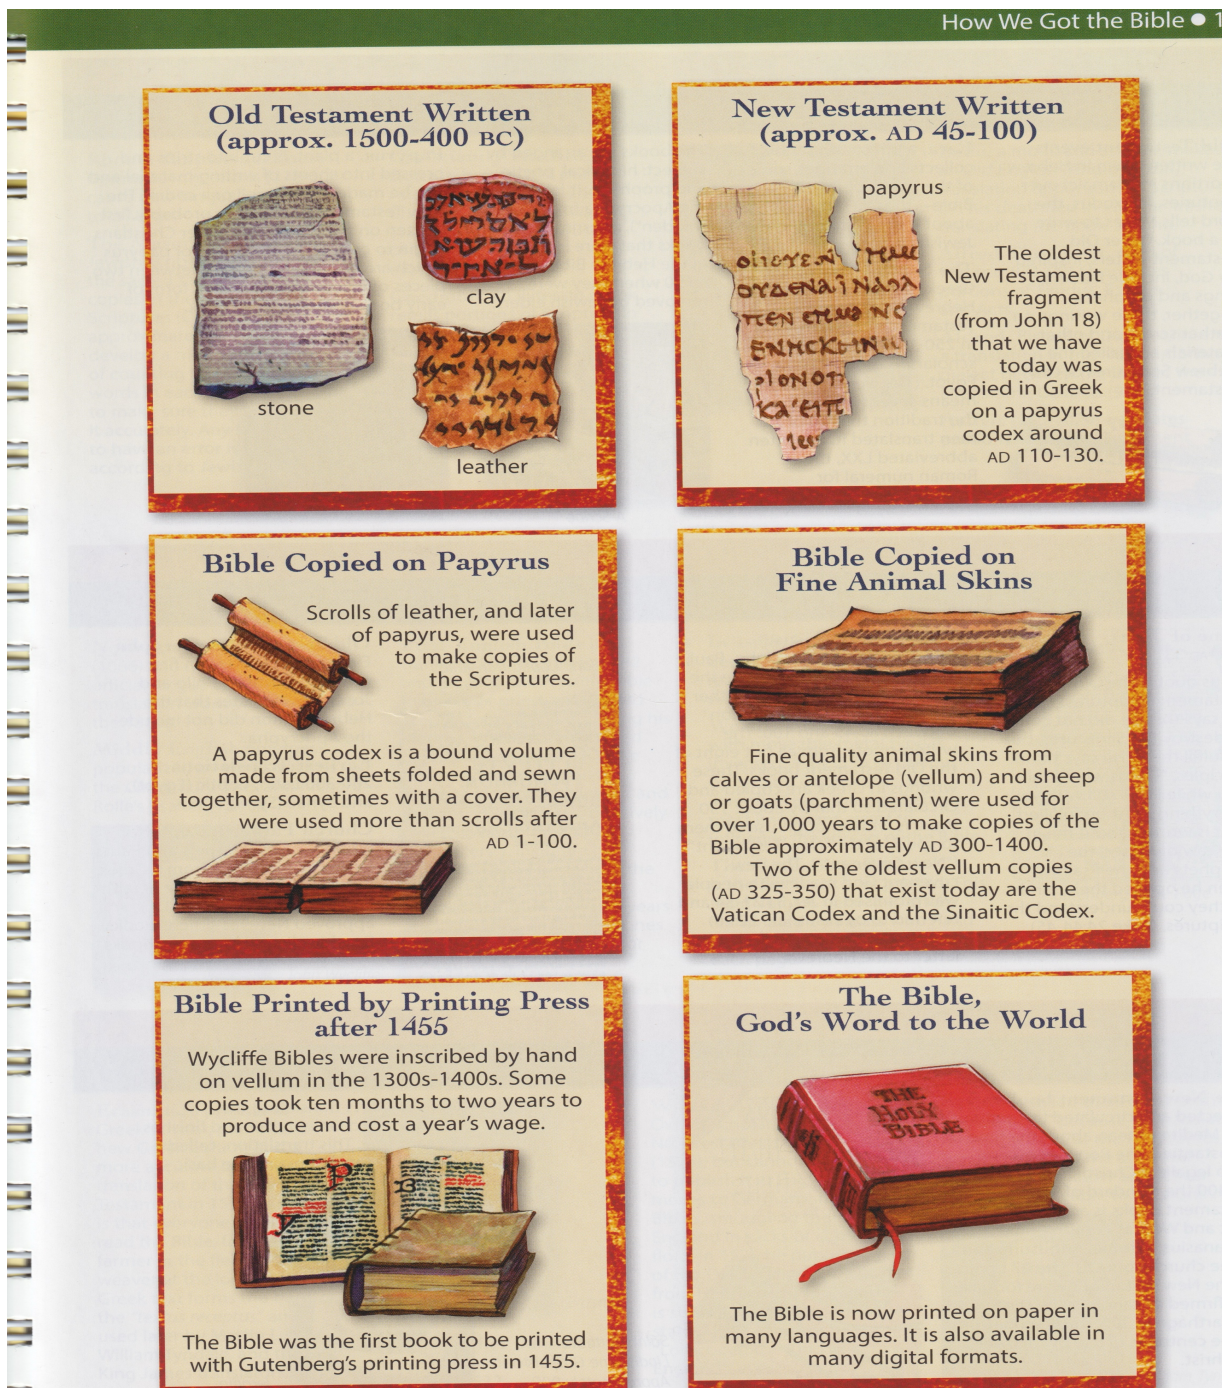 How We Got the Bible ● 1
Old Testament Written
(approx. 1500-400 BC)
stone
clay
leather
New Testament Written
(approx. AD 45-100)
papyrus
The oldest
New Testament
fragment
(from John 18)
that we have
today was
copied in Greek
on a papyrus
codex around
AD 110-130.
Bible Copied on Papyrus
Scrolls of leather, and later
of papyrus, were used
to make copies of
the Scriptures.
A papyrus codex is a bound volume
made from sheets folded and sewn
together, sometimes with a cover. They
were used more than scrolls after
AD 1-100.
Bible Copied on
Fine Animal Skins
Fine quality animal skins from
calves or antelope (vellum) and sheep
or goats (parchment) were used for
over 1,000 years to make copies of the
Bible approximately AD 300-1400.
Two of the oldest vellum copies
(AD 325-350) that exist today are the
Vatican Codex and the Sinaitic Codex.
Bible Printed by Printing Press
after 1455
Wycliffe Bibles were inscribed by hand
on vellum in the 1300s-1400s. Some
copies took ten months to two years to
produce and cost a year's wage.
P
B
The Bible was the first book to be printed
with Gutenberg's printing press in 1455.
The Bible,
God's Word to the World
THE
HOLY
BIBLE
The Bible is now printed on paper in
many languages. It is also available in
many digital formats.